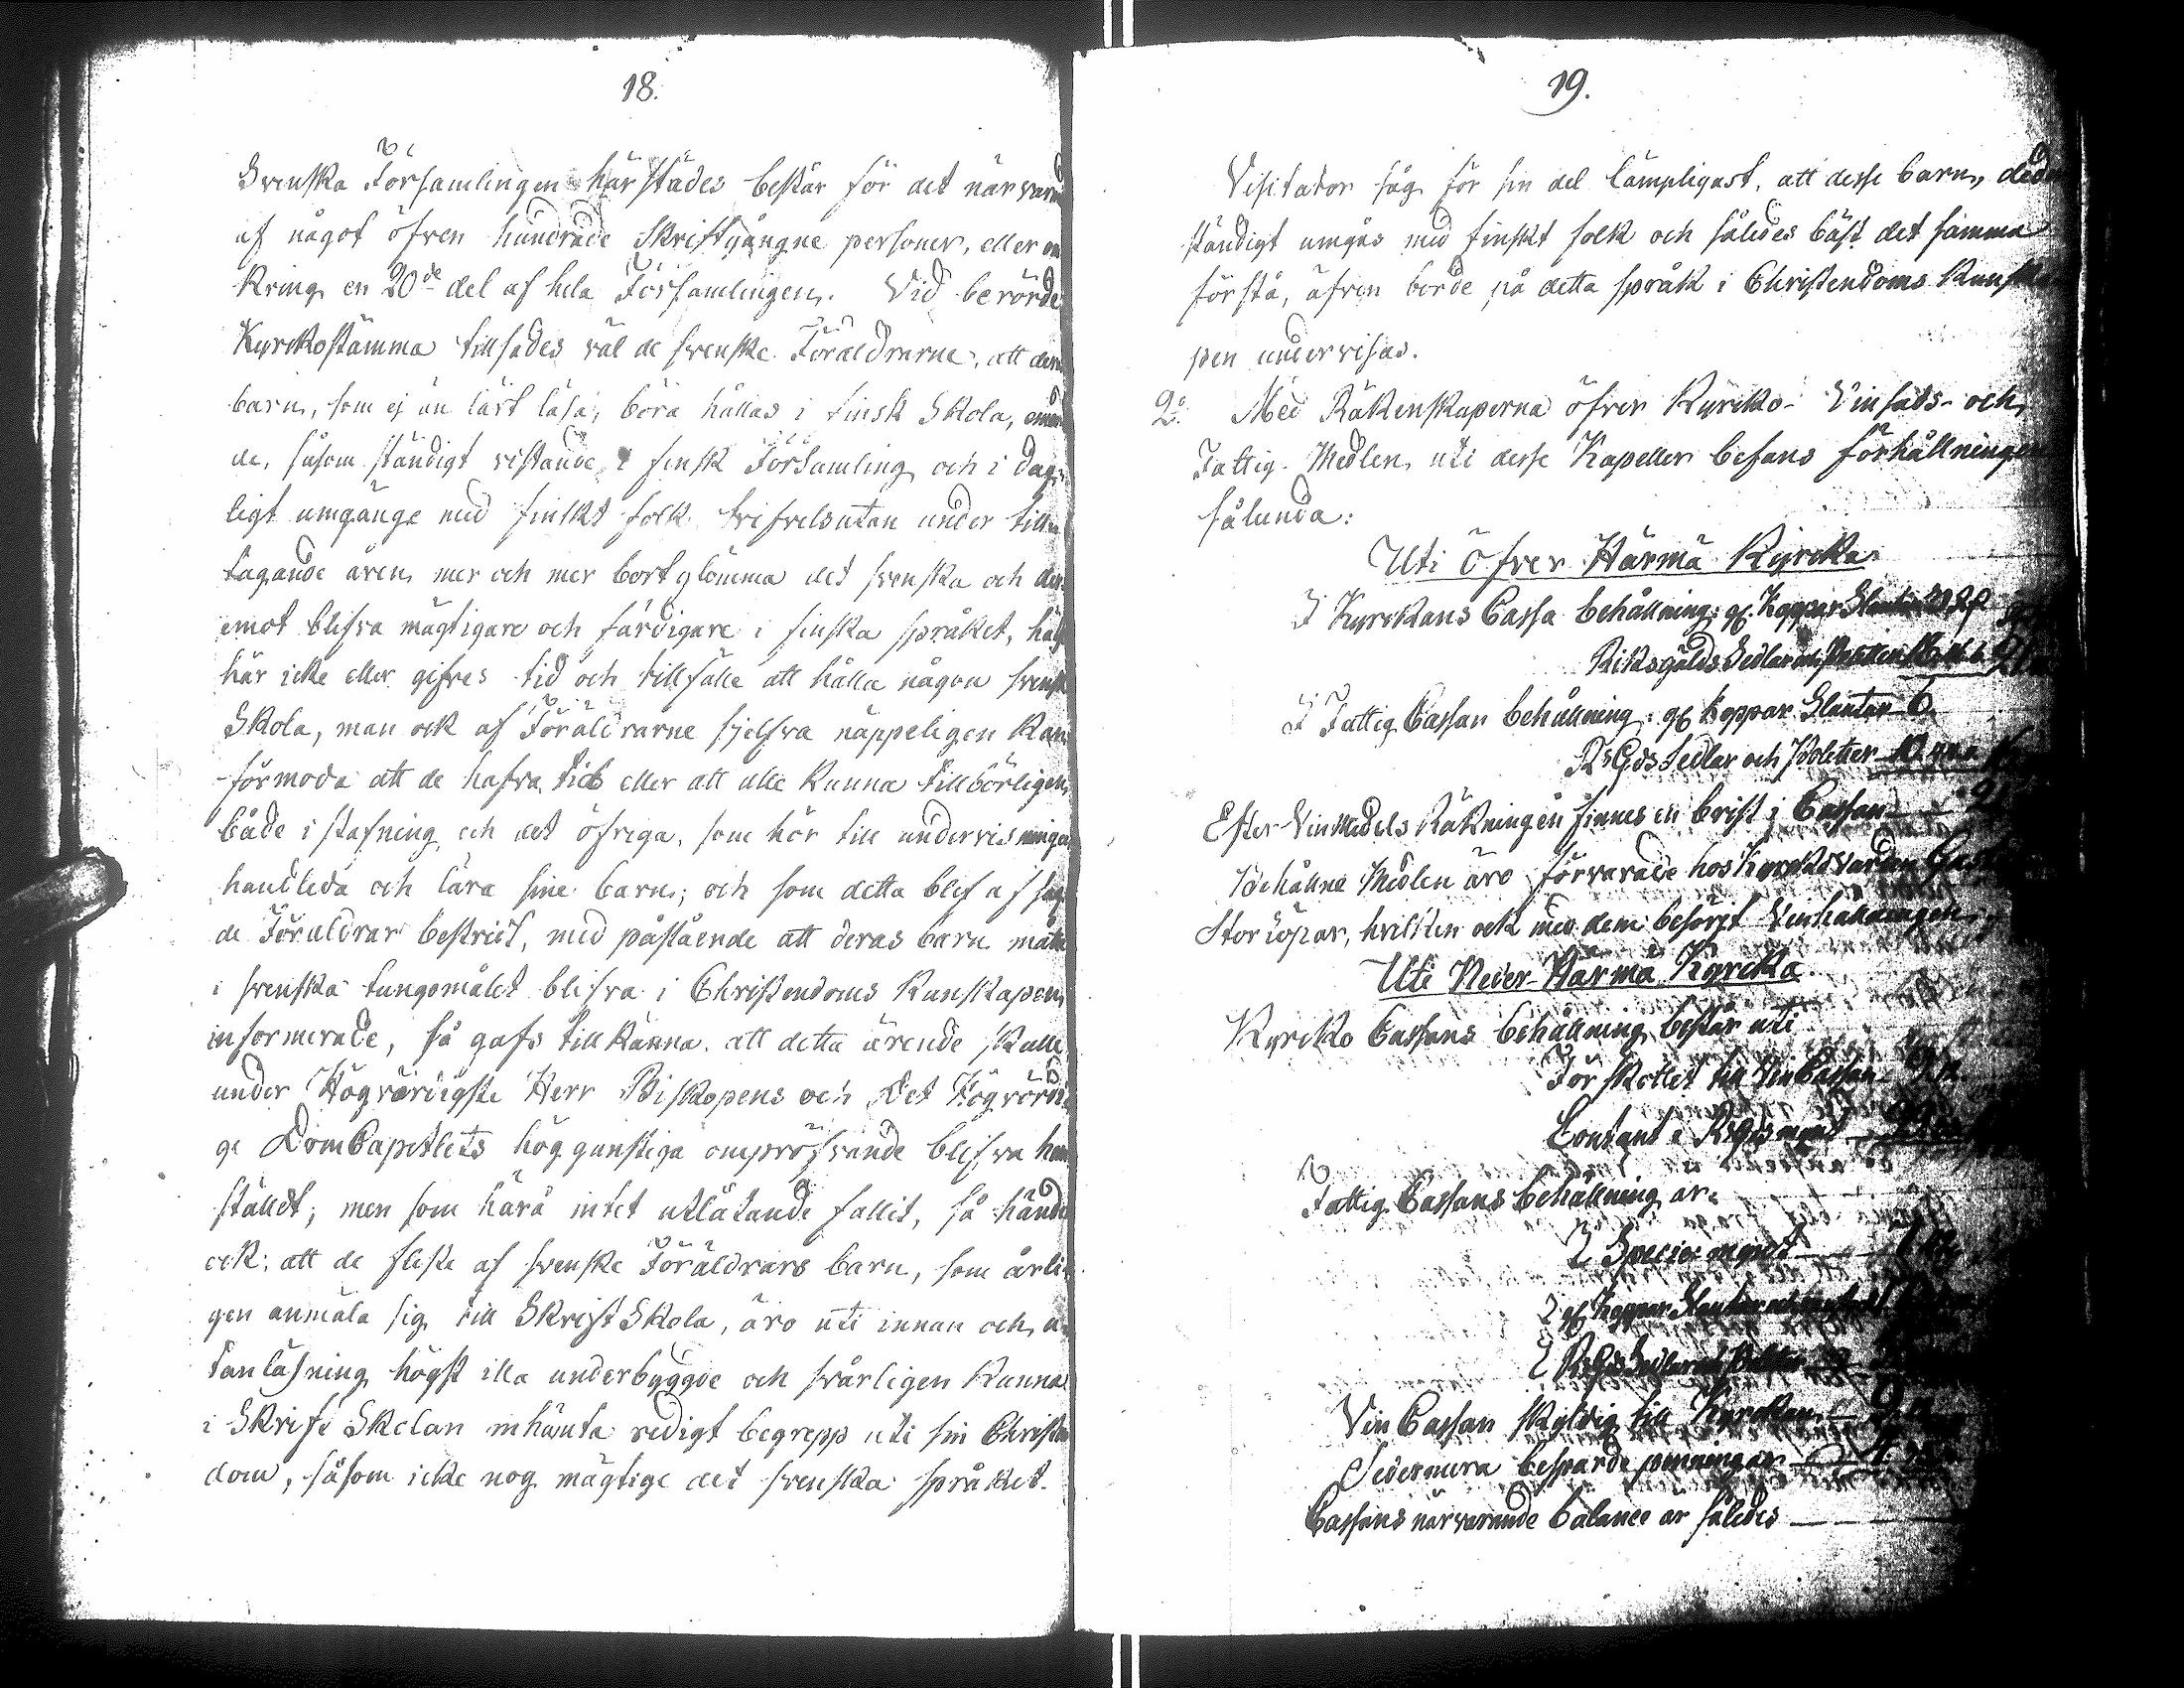 18.
Svenska Församlingen härstädes består för det närvar
af något öfven hundrade Skriftgångne personer, eller om
kring en 20de del af hela Församlingen. Vid berörde
Kyrckostämma tillsades väl de svenske Föräldrarne, att
barn, som ej än lärt läsa, böra hållas i finsk Skola,
de, såsom ständigt vistande i finsk Församling och i dag-
ligt umgänge med finskt folk tvifvelsutan under till-
tagande åren mer och mer bortglömma det svenska och der
emot blifva mägtigare och färdigare i finska språket,
här icke eller gifves tid och tillfälle att hålla någon svensk
Skola, man ock af Föräldrarne sjelfva näppeligen kan
förmoda att de hafva tid eller att alle kunna tillbörligen
både i stafning och det öfriga, som hör till undervisningen
handleda och lära sine barn; och som detta blef af
de Föräldrar bestridt, med påstående att deras barn måtte
i svenska tungomålet blifva i Christendoms Kunskapen
informerade, så gafs tillkänna att detta ärende skulle
under Högvördigste Herr Biskopens och Det Högvördi
ge DomCapitlets höggunstiga ompröfvande blifva hem
ställdt; men som härå intet utlåtande fallit, så händer
ock: att de fleste af svenske Föräldrars barn, som årli
gen anmäla sig till SkriftSkola, äro uti innan och u-
tanläsning högst illa underbyggde och svårligen kunna
i Skrift Skolan inhämta redigt begrepp uti sin Christen
dom, såsom icke nog mägtige det svenska språket.
19.
Visitator såg för sin del lämpligast, att desse barn,
ständigt umgås med finskt folk och således bäst det samma
förstå, äfven borde på detta språk i Christendoms Kunska
pen undervisas.
2o. Med Räkenskaperna öfver Kyrcko- Vinsäds- och
Fattig-Medlen uti desse Kapeller befans förhållningen
sålunda:
Uti Öfver Härmä Kyrcka
I Kyrckans Cassa behållning: gl. Koppar Slantar
Riksgälds Sedlar och
I Fattig Cassan behållning: gl. koppar Slantar 6.
RsGds Sedlar och Poletter
Efter Vinmedels Räkningen finnes en brist i Cassan
Behållne Medlen äro förvarade hos Kyrckovärden
Storöpar, hvilken ock med dem besörjt Vinhållningen.
Uti Neder-Härmä Kyrcka
Kyrcko Cassans behållning består uti
Förskottet till Vin Cassan
Contant i RsGds mynt
Fattig Cassans behållning är:
I Specie mynt
I gl. Koppar Slantar
I RsGds Sedlar och Poletter
Vin Cassan skyldig till Kyrckan
Sedermera besparde penningar
Cassans närvarande balance är således